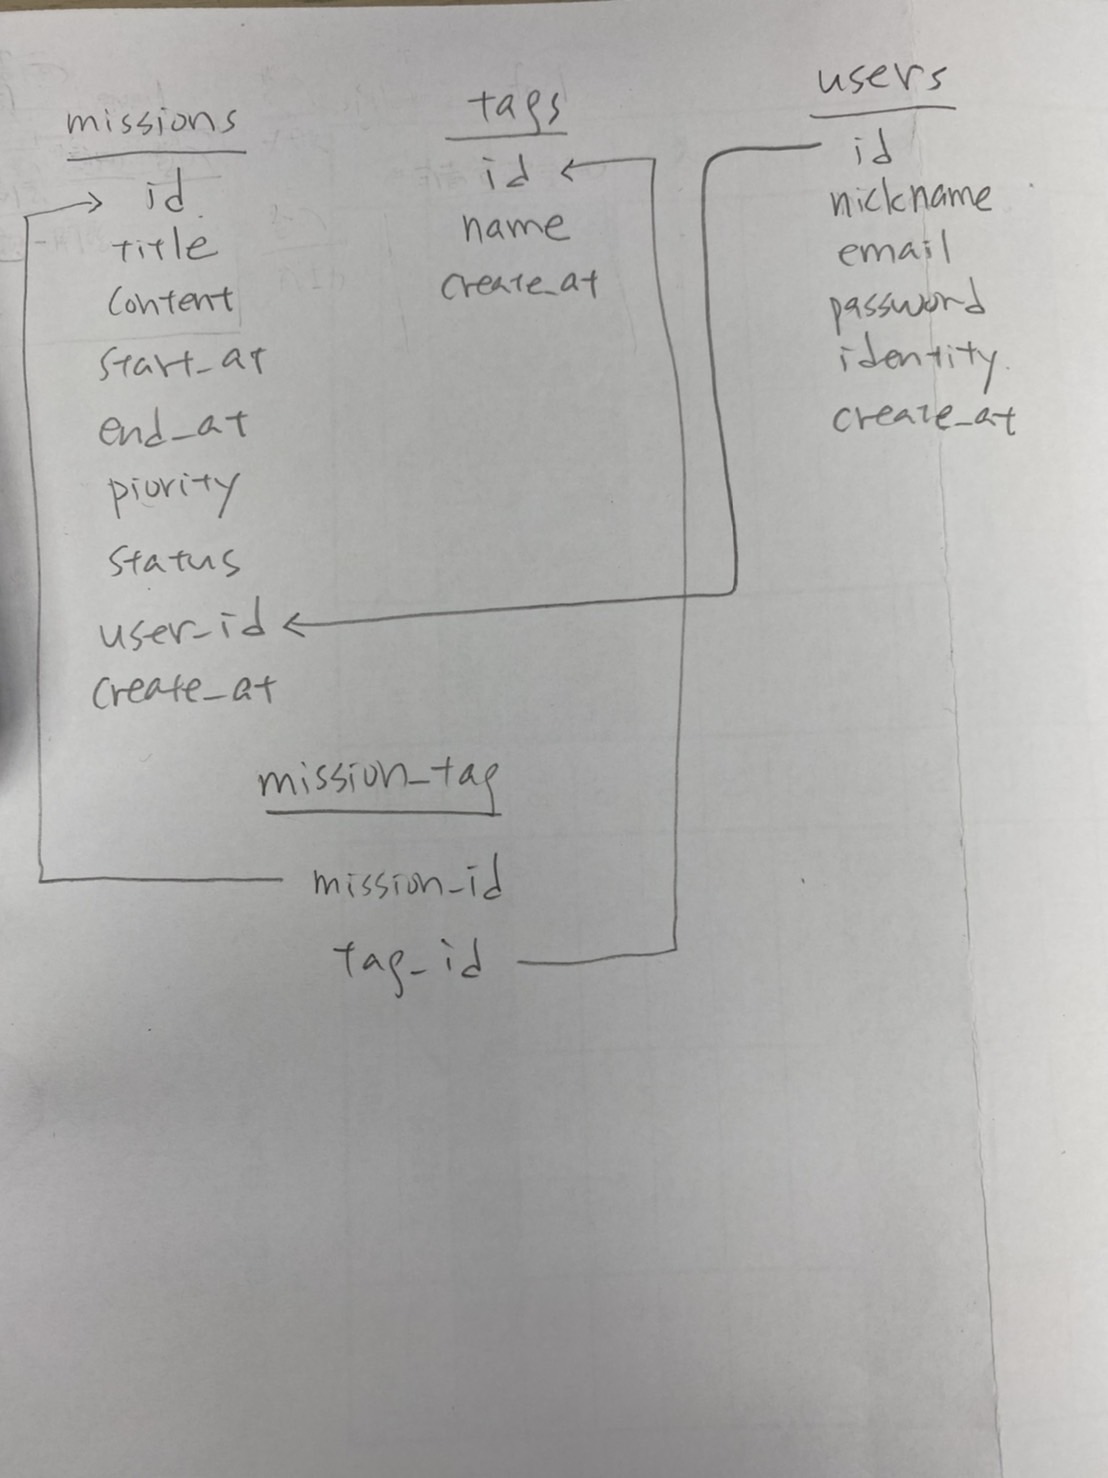 missions
id
title
content
start_at
end_at
piority
status
user_id
create_at
tags
id
name
create_at
users
id
nickname
email
password
identity
create_at
mission_tag
mission_id
tag_id